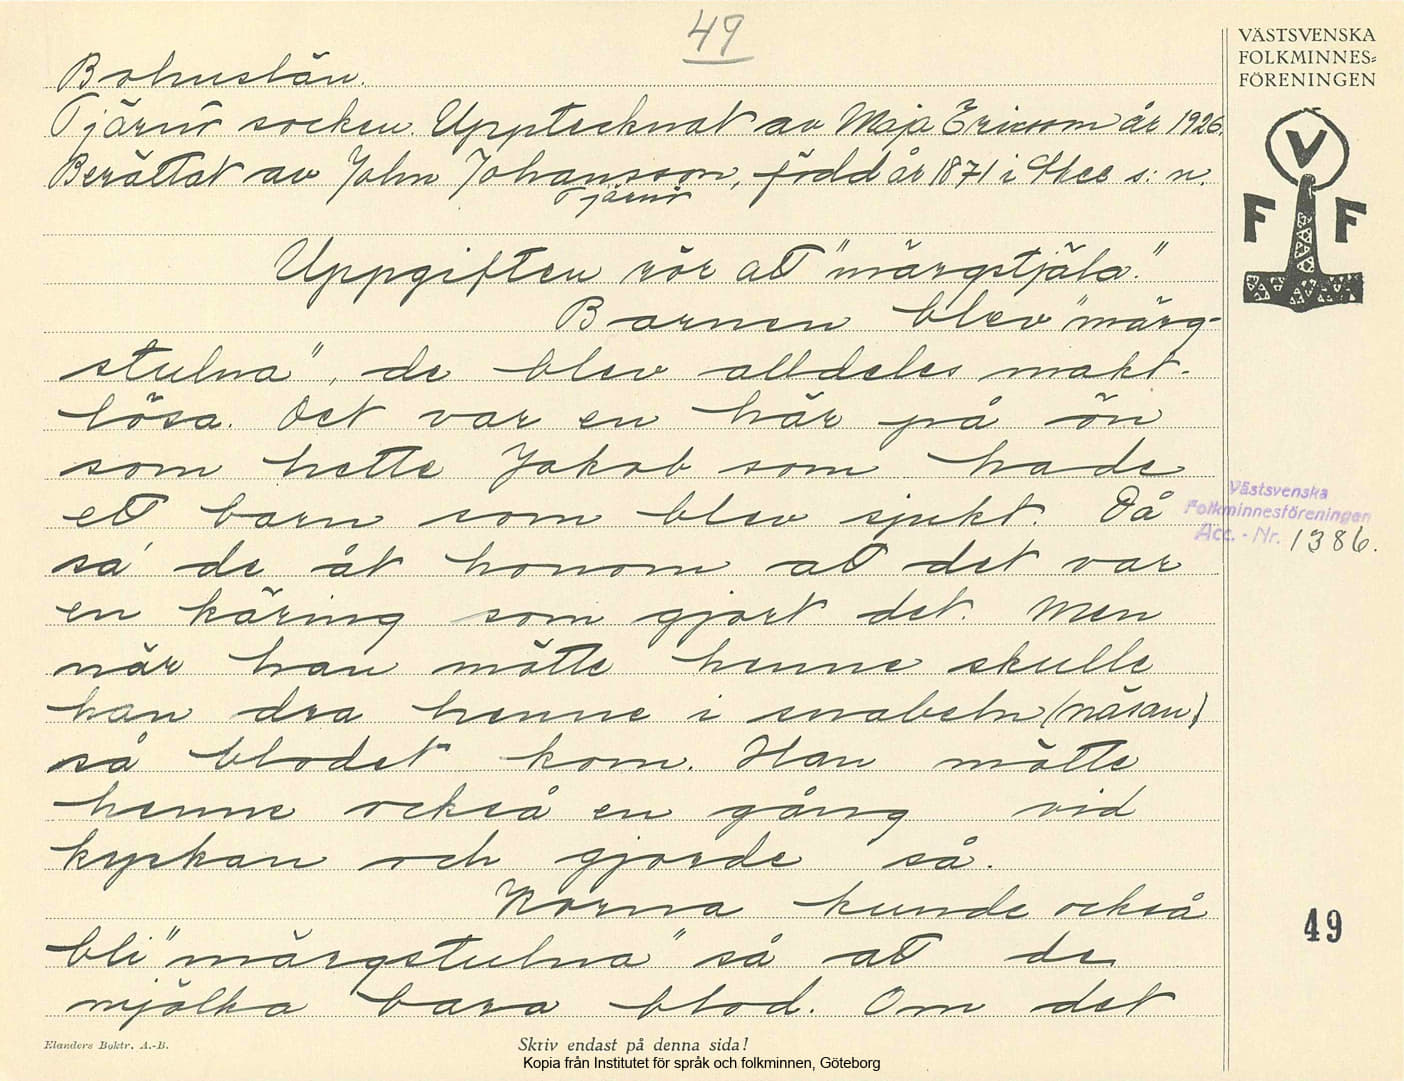 49
VÄSTSVENSKA
FOLKMINNES=
FÖRENINGEN
V
F F
Bohuslän.
Tjärnö socken. Upptecknat av Maja Ericson år 1926.
Berättat av John Johansson, född år 1871 i Skee s:n.
Tjärnö
Uppgiften rör att "märgstjäla."
Barnen blev "märg-
stulna", de blev alldeles makt-
lösa. Det var en här på ön
som hette Jakob som hade
ett barn som blev sjukt. Då
sa' de åt honom att det var
en käring som gjort det. Men
när han mötte henne skulle
han dra henne i snabeln (näsan)
så blodet kom. Han mötte
henne också en gång vid
kyrkan och gjorde så.
Korna kunde också
bli "märgstulna" så att de
mjölka bara blod. Om det
Västsvenska
Folkminnesföreningen
Acc. - Nr. 1386.
49
Elanders Boktr. A.-B.
Skriv endast på denna sida!
Kopia från Institutet för språk och folkminnen, Göteborg